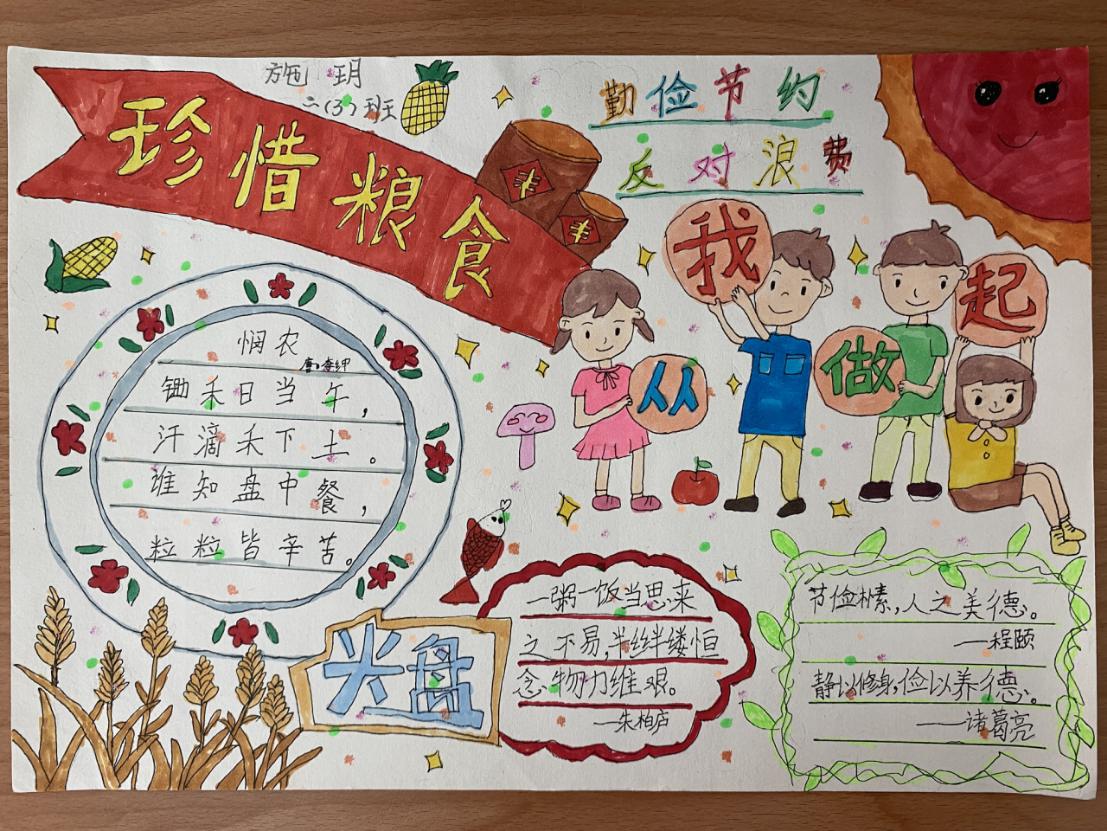 施玥
(3)班
珍惜粮食
勤俭节约
反对浪费
丰
丰
从我做起
悯农
锄禾日当午,
汗滴禾下土。
谁知盘中餐,
粒粒皆辛苦。
光盘
一粥一饭当思来
之不易,半丝半缕恒
念物力维艰。
—朱柏庐
节俭朴素,人之美德。
—程颐
静以修身,俭以养德。
——诸葛亮